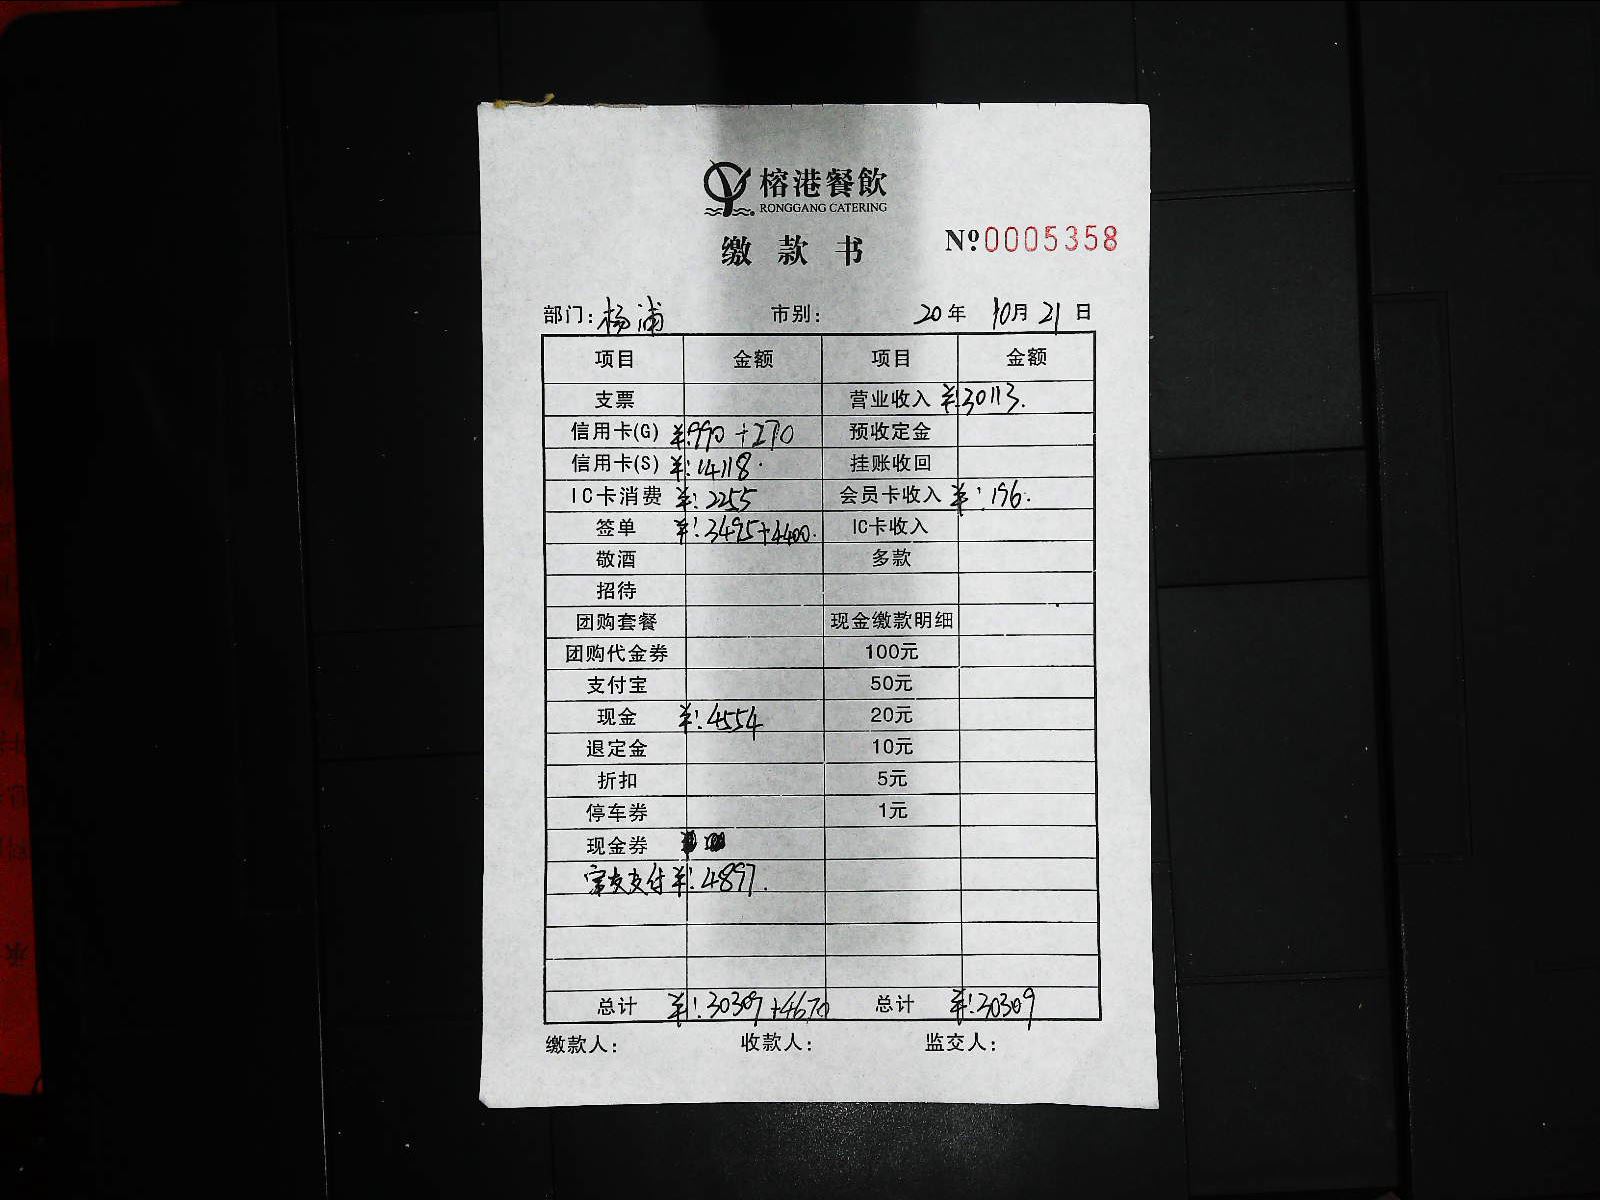 榕港餐飲
RONGGANG CATERING
缴款书 №0005358
部门: 杨浦 市别: 20年 10月 21日
项目 金额 项目 金额
支票 营业收入 ¥:30113.
信用卡(G) ¥:990+270 预收定金
信用卡(S) ¥:14118. 挂账收回
IC卡消费 ¥:2255 会员卡收入 ¥:196.
签单 ¥:3495+4400. IC卡收入
敬酒 多款
招待
团购套餐 现金缴款明细
团购代金券 100元
支付宝 50元
现金 ¥:4554 20元
退定金 10元
折扣 5元
停车券 1元
现金券
支付 ¥:4897.
总计 ¥:30309+4670 总计 ¥:30309
缴款人: 收款人: 监交人: